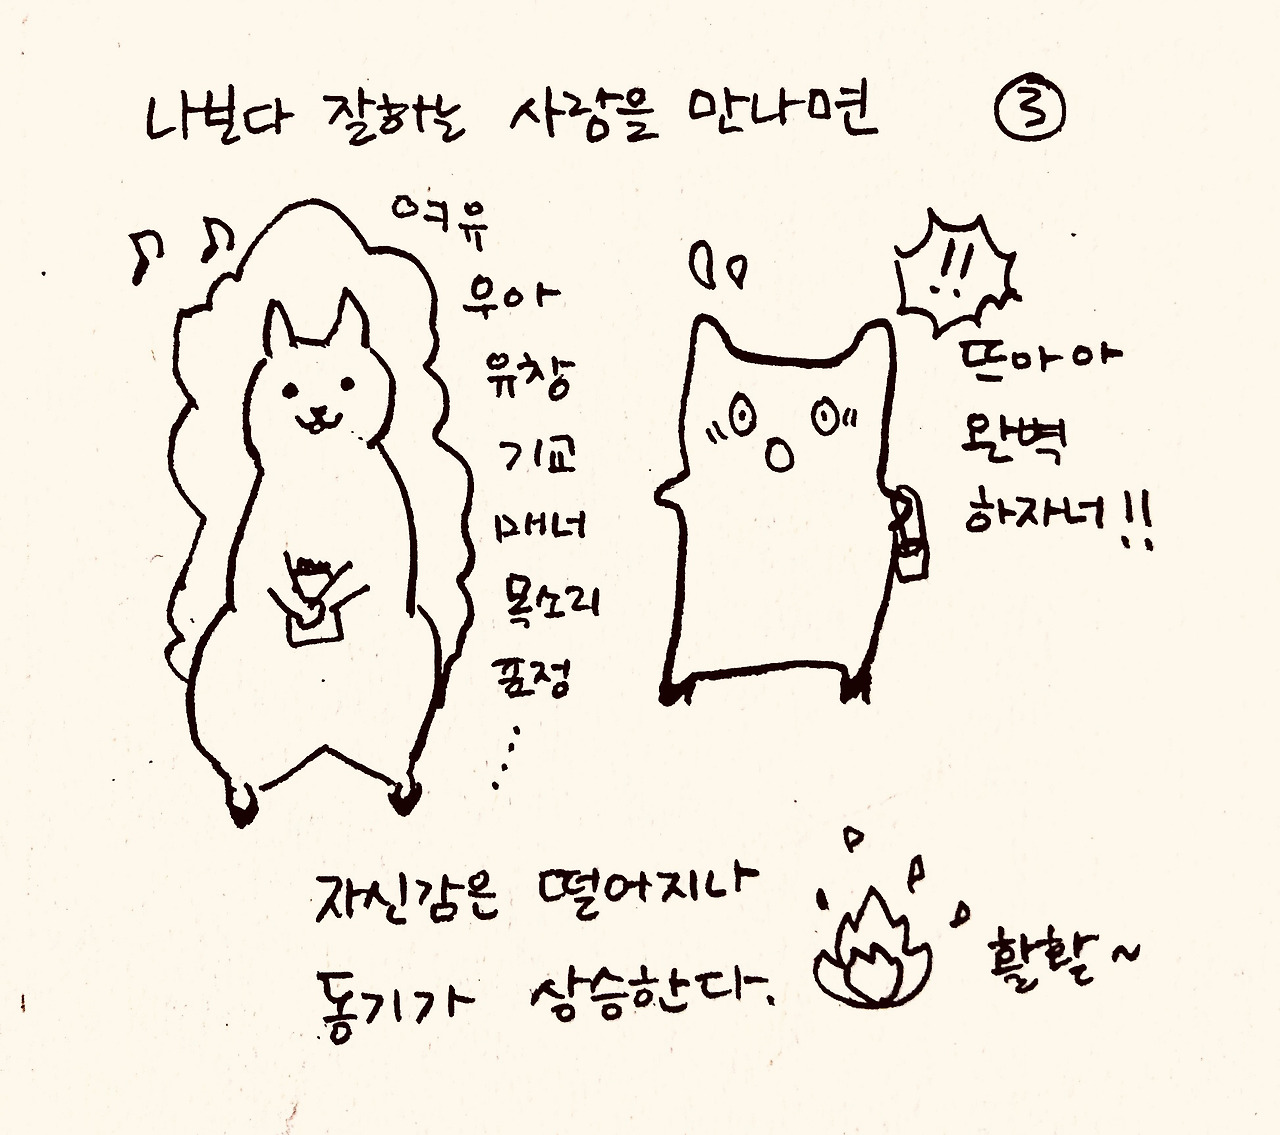 나보다 잘하는 사람을 만나면 ③
여유
우아
유창
기교
매너
목소리
표정
⋮
!!
뜨아아
완벽
하자너!!
자신감은 떨어지나
동기가 상승한다.
활활~